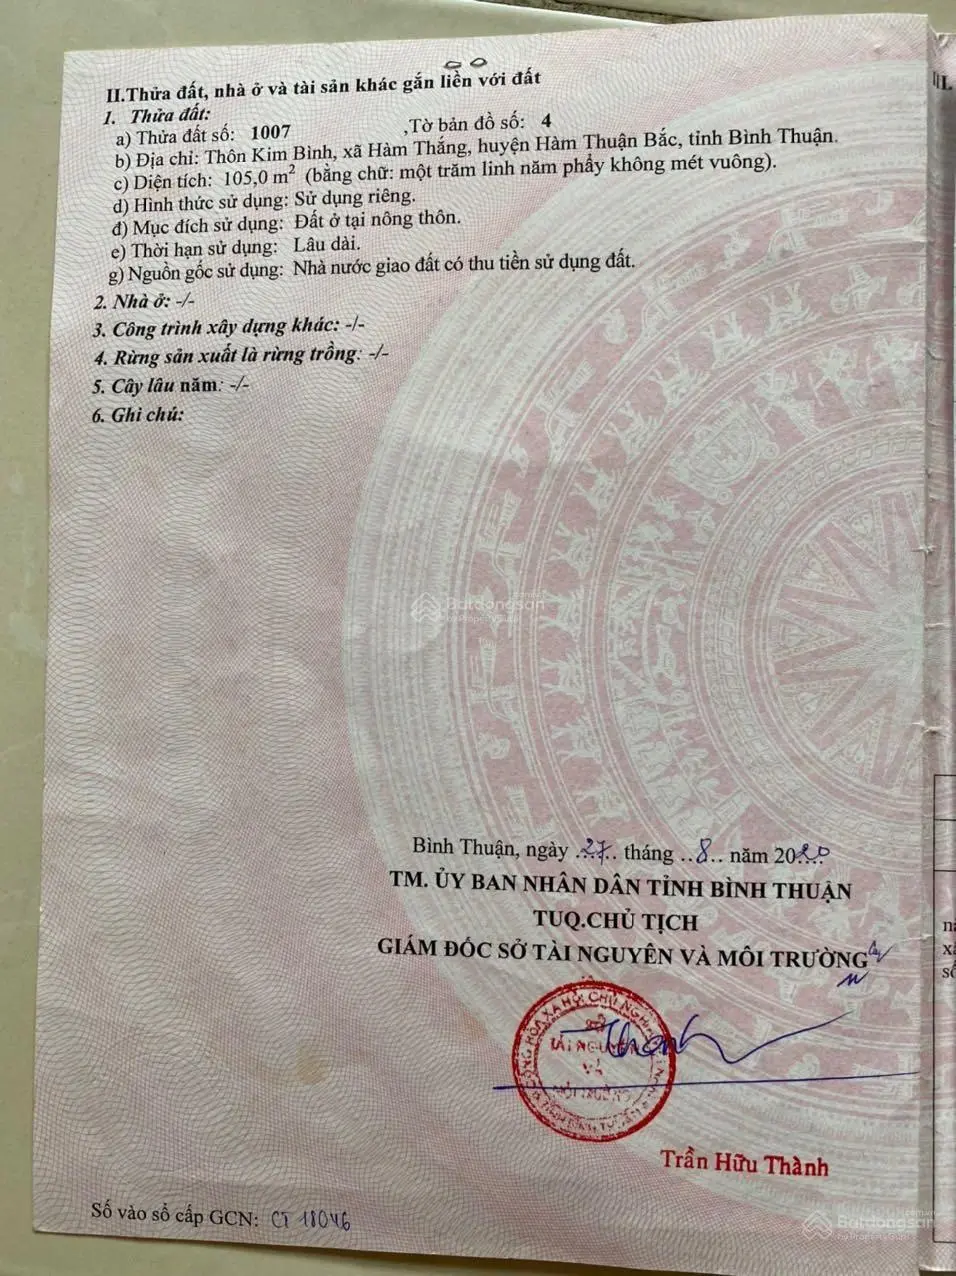 II.Thửa đất, nhà ở và tài sản khác gắn liền với đất
1. Thửa đất:
a) Thửa đất số: 1007 ,Tờ bản đồ số: 4
b) Địa chỉ: Thôn Kim Bình, xã Hàm Thắng, huyện Hàm Thuận Bắc, tỉnh Bình Thuận.
c) Diện tích: 105,0 m² (bằng chữ: một trăm linh năm phẩy không mét vuông).
d) Hình thức sử dụng: Sử dụng riêng.
đ) Mục đích sử dụng: Đất ở tại nông thôn.
e) Thời hạn sử dụng: Lâu dài.
g) Nguồn gốc sử dụng: Nhà nước giao đất có thu tiền sử dụng đất.
2. Nhà ở: -/-
3. Công trình xây dựng khác: -/-
4. Rừng sản xuất là rừng trồng: -/-
5. Cây lâu năm: -/-
6. Ghi chú:
Batdongsan
by PropertyGuru
Bình Thuận, ngày 27 tháng 8 năm 2020
TM. ỦY BAN NHÂN DÂN TỈNH BÌNH THUẬN
TUQ.CHỦ TỊCH
GIÁM ĐỐC SỞ TÀI NGUYÊN VÀ MÔI TRƯỜNG
CỘNG HÒA XÃ HỘI CHỦ NGHĨA
SỞ
TÀI NGUYÊN
VÀ
MÔI TRƯỜNG
Trần Hữu Thành
Số vào sổ cấp GCN: CT 18046
Batdongsan
by PropertyGuru